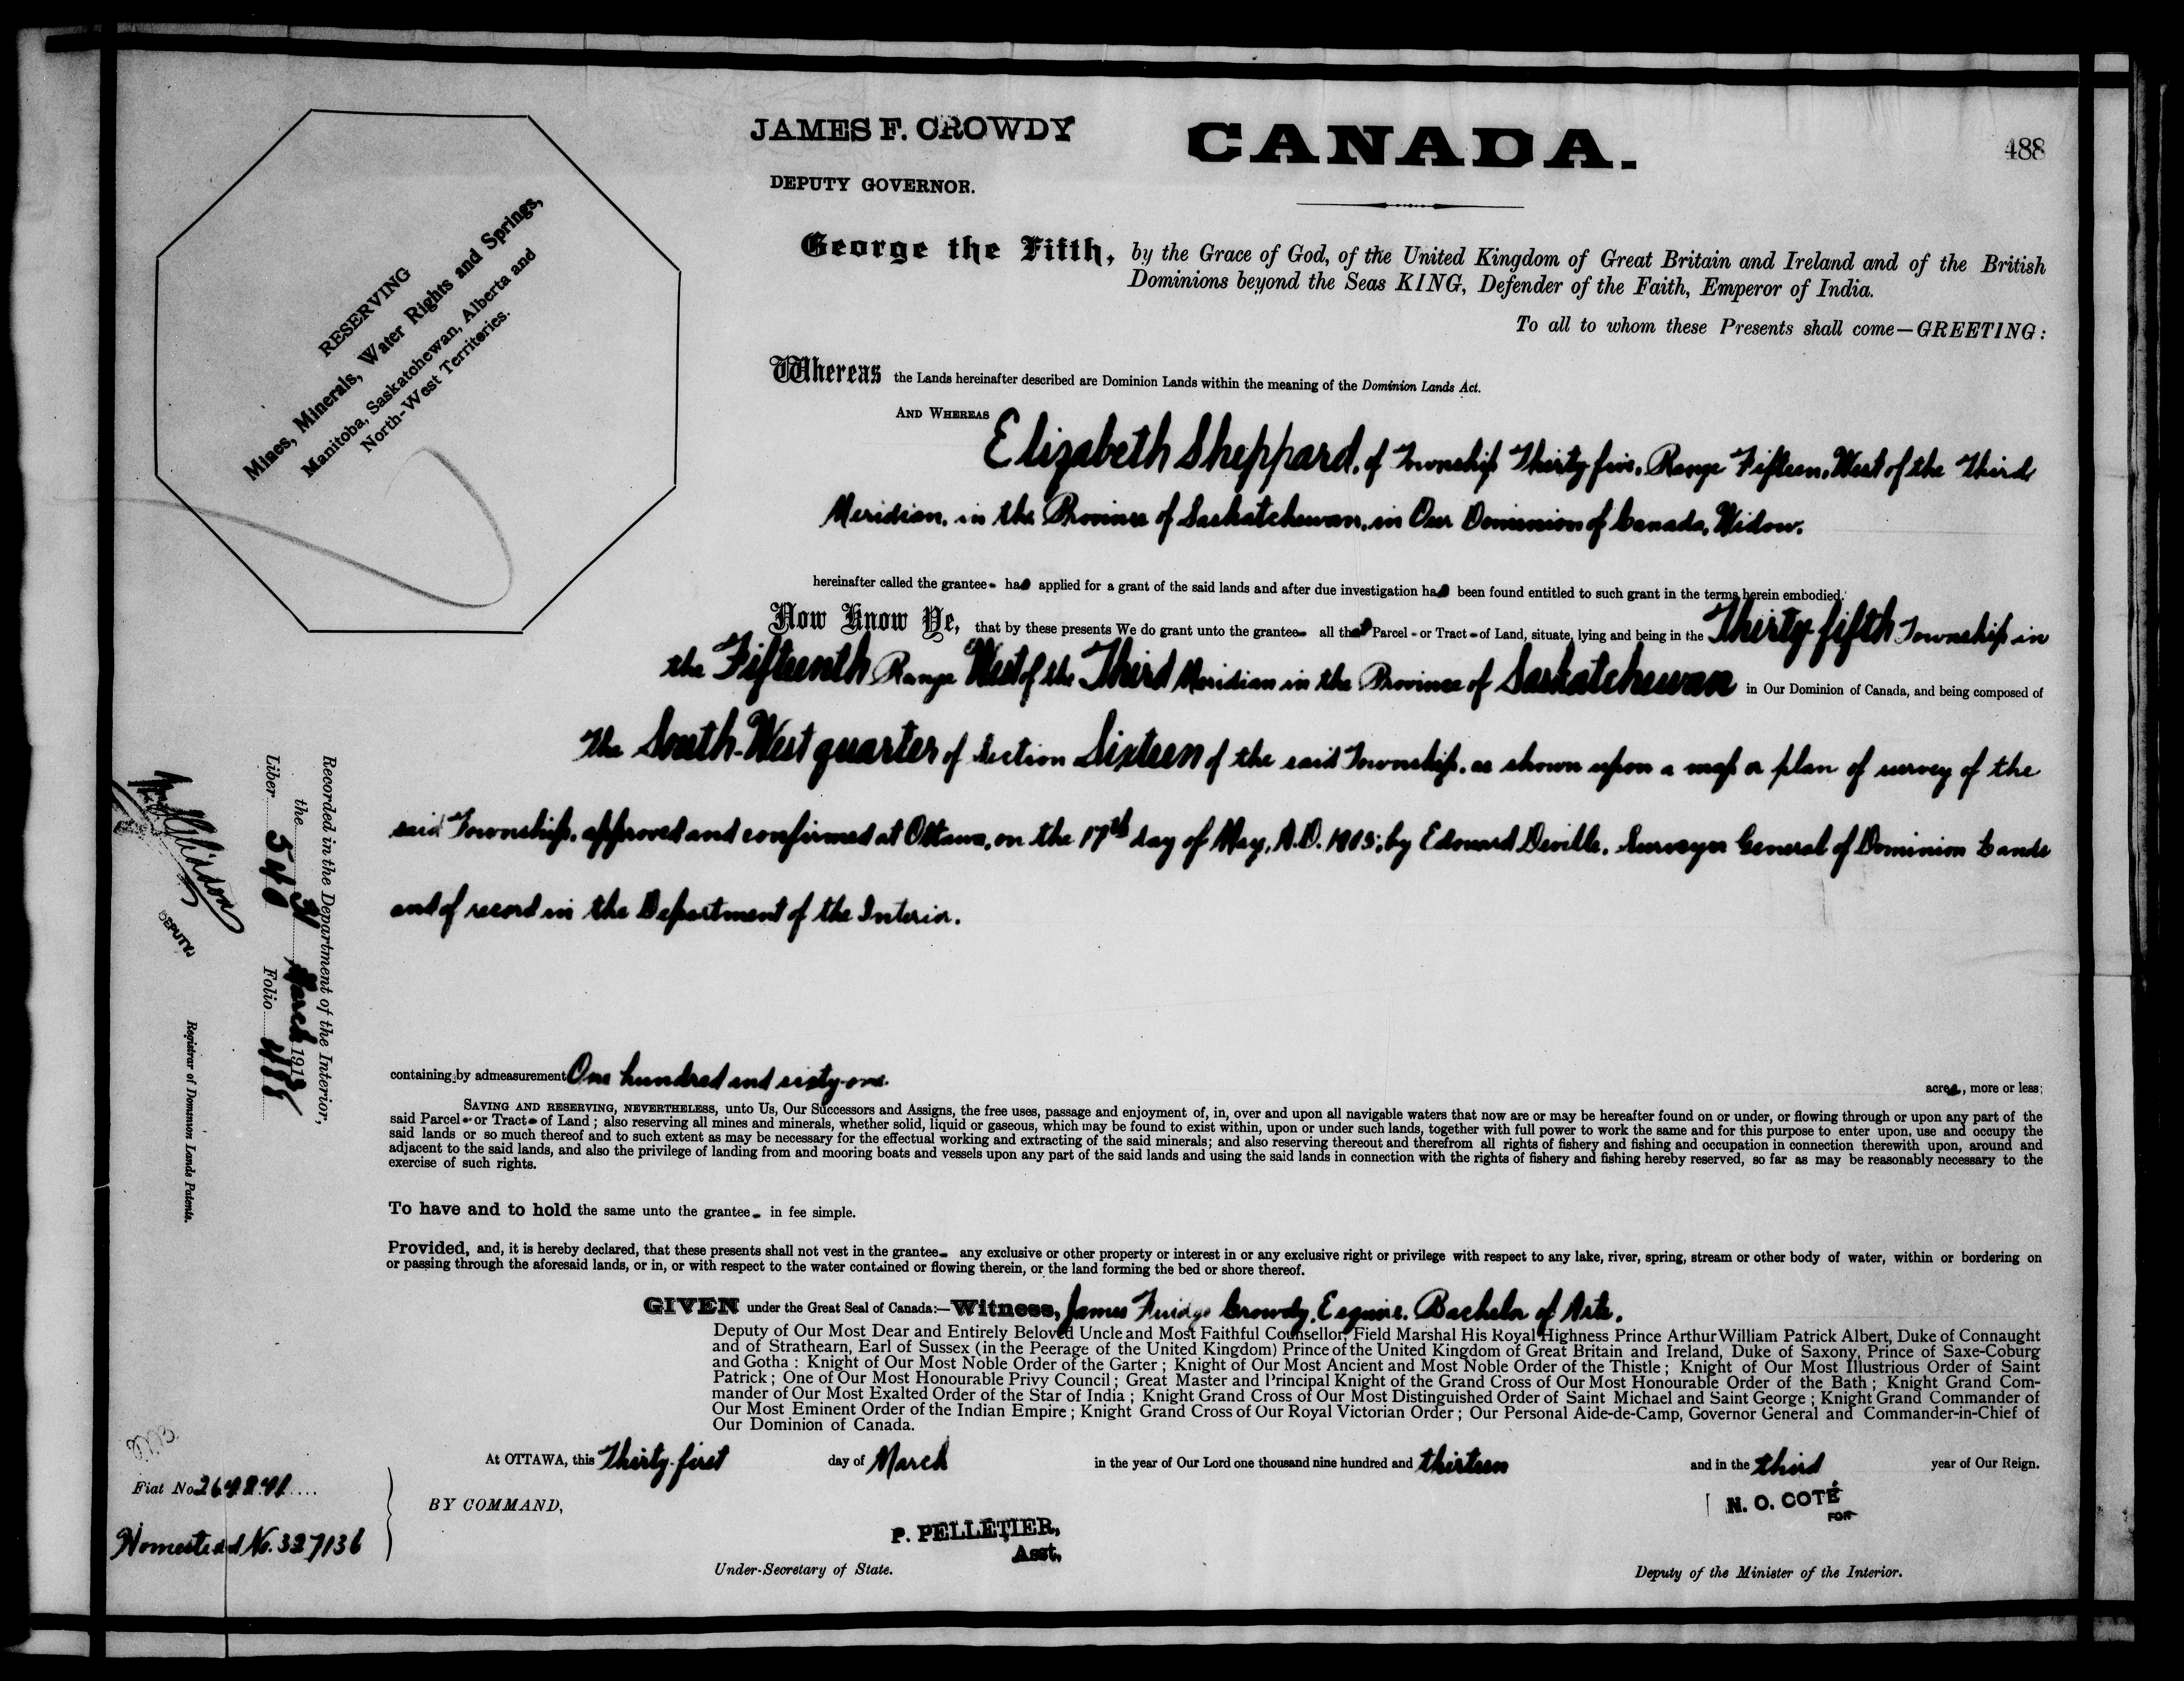 JAMES F. CROWDY
DEPUTY GOVERNOR.
CANADA.
488
RESERVING
Mines, Minerals, Water Rights and Springs,
Manitoba, Saskatchewan, Alberta and
North-West Territories.
George the Fifth, by the Grace of God, of the United Kingdom of Great Britain and Ireland and of the British
Dominions beyond the Seas KING, Defender of the Faith, Emperor of India.
To all to whom these Presents shall come—GREETING:
Whereas the Lands hereinafter described are Dominion Lands within the meaning of the Dominion Lands Act.
AND WHEREAS Elizabeth Sheppard, of Township Thirty-five, Range Fifteen, West of the Third
Meridian, in the Province of Saskatchewan, in Our Dominion of Canada, Widow.
hereinafter called the grantee- has applied for a grant of the said lands and after due investigation has been found entitled to such grant in the terms herein embodied.
Now Know Ye, that by these presents We do grant unto the grantee- all that Parcel - or Tract - of Land, situate, lying and being in the Thirty-fifth Township in
the Fifteenth Range West of the Third Meridian in the Province of Saskatchewan in Our Dominion of Canada, and being composed of
The South-West quarter of Section Sixteen of the said Township, as shown upon a map or plan of survey of the
said Township, approved and confirmed at Ottawa, on the 17th day of May, A.D. by Edouard Deville, Surveyor General of Dominion Lands
and of record in the Department of the Interior.
containing by admeasurement One hundred and sixty-one. acres, more or less;
SAVING AND RESERVING, NEVERTHELESS, unto Us, Our Successors and Assigns, the free uses, passage and enjoyment of, in, over and upon all navigable waters that now are or may be hereafter found on or under, or flowing through or upon any part of the
said Parcel - or Tract - of Land; also reserving all mines and minerals, whether solid, liquid or gaseous, which may be found to exist within, upon or under such lands, together with full power to work the same and for this purpose to enter upon, use and occupy the
said lands or so much thereof and to such extent as may be necessary for the effectual working and extracting of the said minerals; and also reserving thereout and therefrom all rights of fishery and fishing and occupation in connection therewith upon, around and
adjacent to the said lands, and also the privilege of landing from and mooring boats and vessels upon any part of the said lands and using the said lands in connection with the rights of fishery and fishing hereby reserved, so far as may be reasonably necessary to the
exercise of such rights.
To have and to hold the same unto the grantee- in fee simple.
Provided, and, it is hereby declared, that these presents shall not vest in the grantee- any exclusive or other property or interest in or any exclusive right or privilege with respect to any lake, river, spring, stream or other body of water, within or bordering on
or passing through the aforesaid lands, or in, or with respect to the water contained or flowing therein, or the land forming the bed or shore thereof.
GIVEN under the Great Seal of Canada:—Witness, James Crowdy, Esquire, Bachelor of Arts,
Deputy of Our Most Dear and Entirely Beloved Uncle and Most Faithful Counsellor, Field Marshal His Royal Highness Prince Arthur William Patrick Albert, Duke of Connaught
and of Strathearn, Earl of Sussex (in the Peerage of the United Kingdom) Prince of the United Kingdom of Great Britain and Ireland, Duke of Saxony, Prince of Saxe-Coburg
and Gotha: Knight of Our Most Noble Order of the Garter; Knight of Our Most Ancient and Most Noble Order of the Thistle; Knight of Our Most Illustrious Order of Saint
Patrick; One of Our Most Honourable Privy Council; Great Master and Principal Knight of the Grand Cross of Our Most Honourable Order of the Bath; Knight Grand Com-
mander of Our Most Exalted Order of the Star of India; Knight Grand Cross of Our Most Distinguished Order of Saint Michael and Saint George; Knight Grand Commander of
Our Most Eminent Order of the Indian Empire; Knight Grand Cross of Our Royal Victorian Order; Our Personal Aide-de-Camp, Governor General and Commander-in-Chief of
Our Dominion of Canada.
At OTTAWA, this Thirty-first day of March in the year of Our Lord one thousand nine hundred and thirteen and in the third year of Our Reign.
BY COMMAND,
P. PELLETIER,
Asst,
Under-Secretary of State.
N. O. COTÉ
FOR
Deputy of the Minister of the Interior.
Recorded in the Department of the Interior,
the 31 March 1913
Liber 540 Folio
DEPUTY
Registrar of Dominion Lands Patents.
Fiat No.
Homestead No. 327136